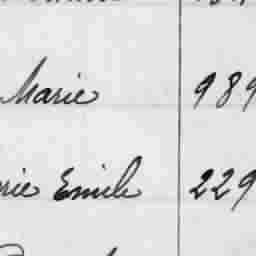 Marie 989
rie Emile 229